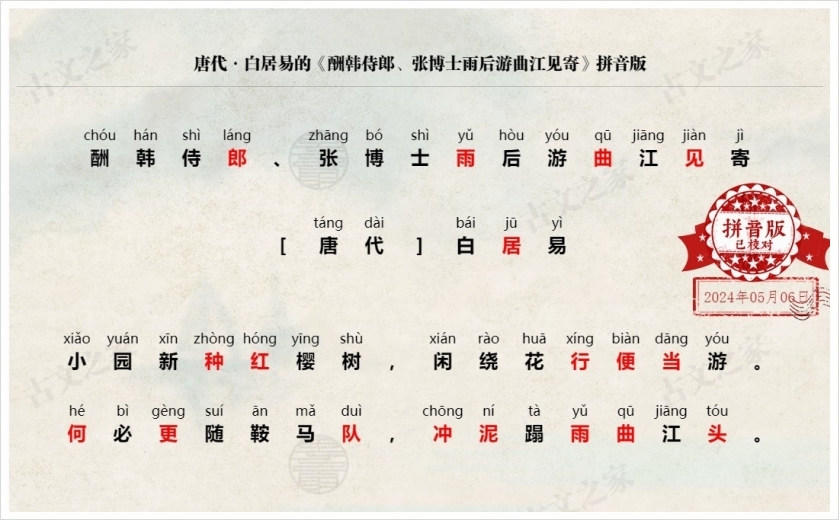 唐代·白居易的《酬韩侍郎、张博士雨后游曲江见寄》拼音版
chóu hán shì láng zhāng bó shì yǔ hòu yóu qū jiāng jiàn jì
酬韩侍郎、张博士雨后游曲江见寄
táng dài bái jū yì
[唐代]白居易
拼音版
已校对
2024年05月06日
xiǎo yuán xīn zhòng hóng yīng shù xián rào huā xíng biàn dāng yóu
小园新种红樱树,闲绕花行便当游。
hé bì gèng suí ān mǎ duì chōng ní tà yǔ qū jiāng tóu
何必更随鞍马队,冲泥蹋雨曲江头。
古文之家
古文之家
古文之家
古文之家
古文之家
古文之家